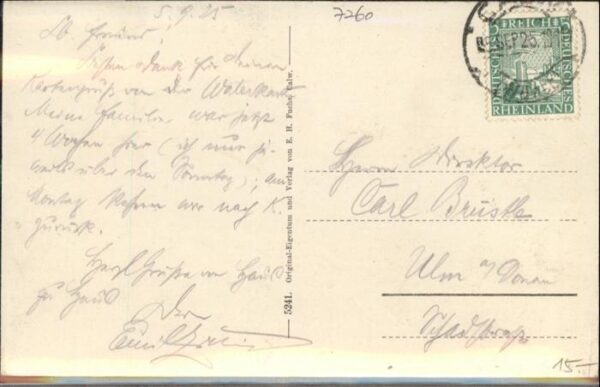 5.9.25
7260
Lb. Freund!
Besten Dank für Deinen
Kartengruß von der Waterkant
Meine Familie war jetzt
4 Wochen hier (ich nur je-
weils über den Sonntag); am
Montag kehren wir nach K.
zurück.
Herzl Grüße von Haus
zu Haus
Dein
Emil
5241. Original-Eigentum und Verlag von E. H. Fuchs, Calw.
DEUTSCHES REICH
5 5
RHEINLAND
SEP 25
Herrn Direktor
Carl Brüstle
Ulm a/Donau
15.-